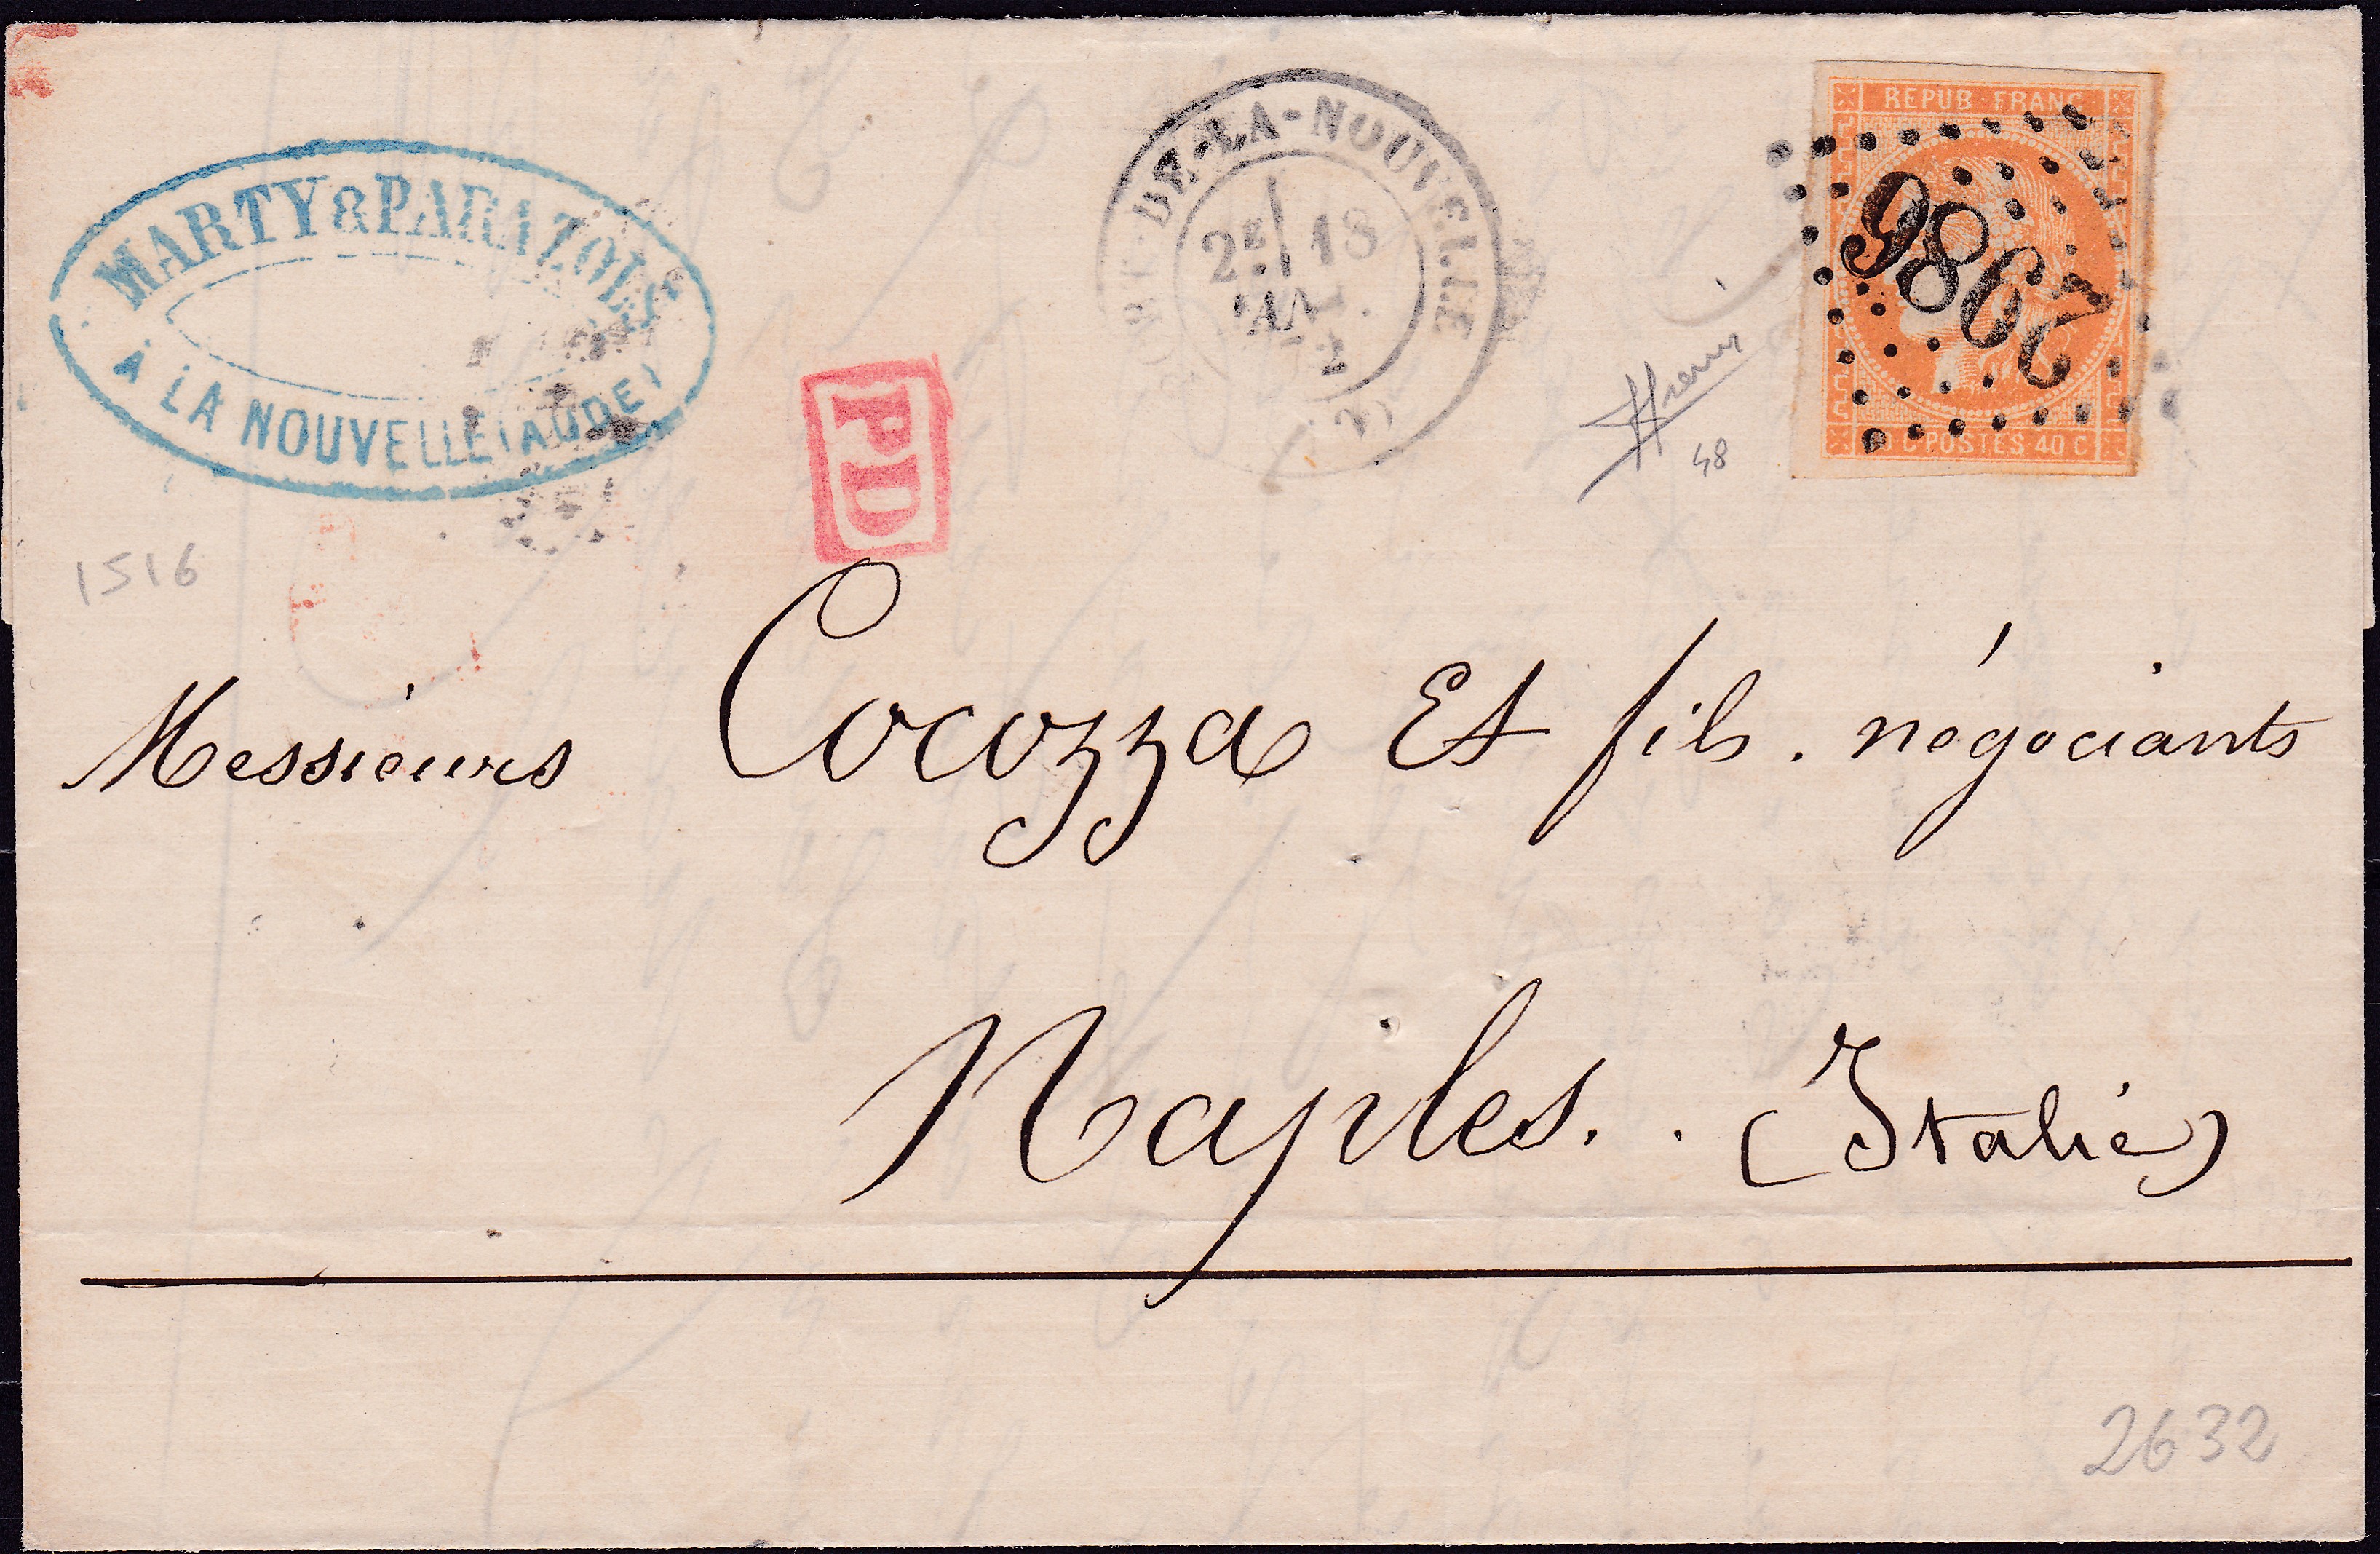 MARTY & PARAZOLS
A LA NOUVELLE (AUDE)
DE-LA-NOUVELLE
2E 18
JANV.
2
PD
REPUB·FRANC·
2986
C·POSTES 40 C
48
1516
Messieurs Cocozza Et fils. négociants
Naples. . (Italie)
2632